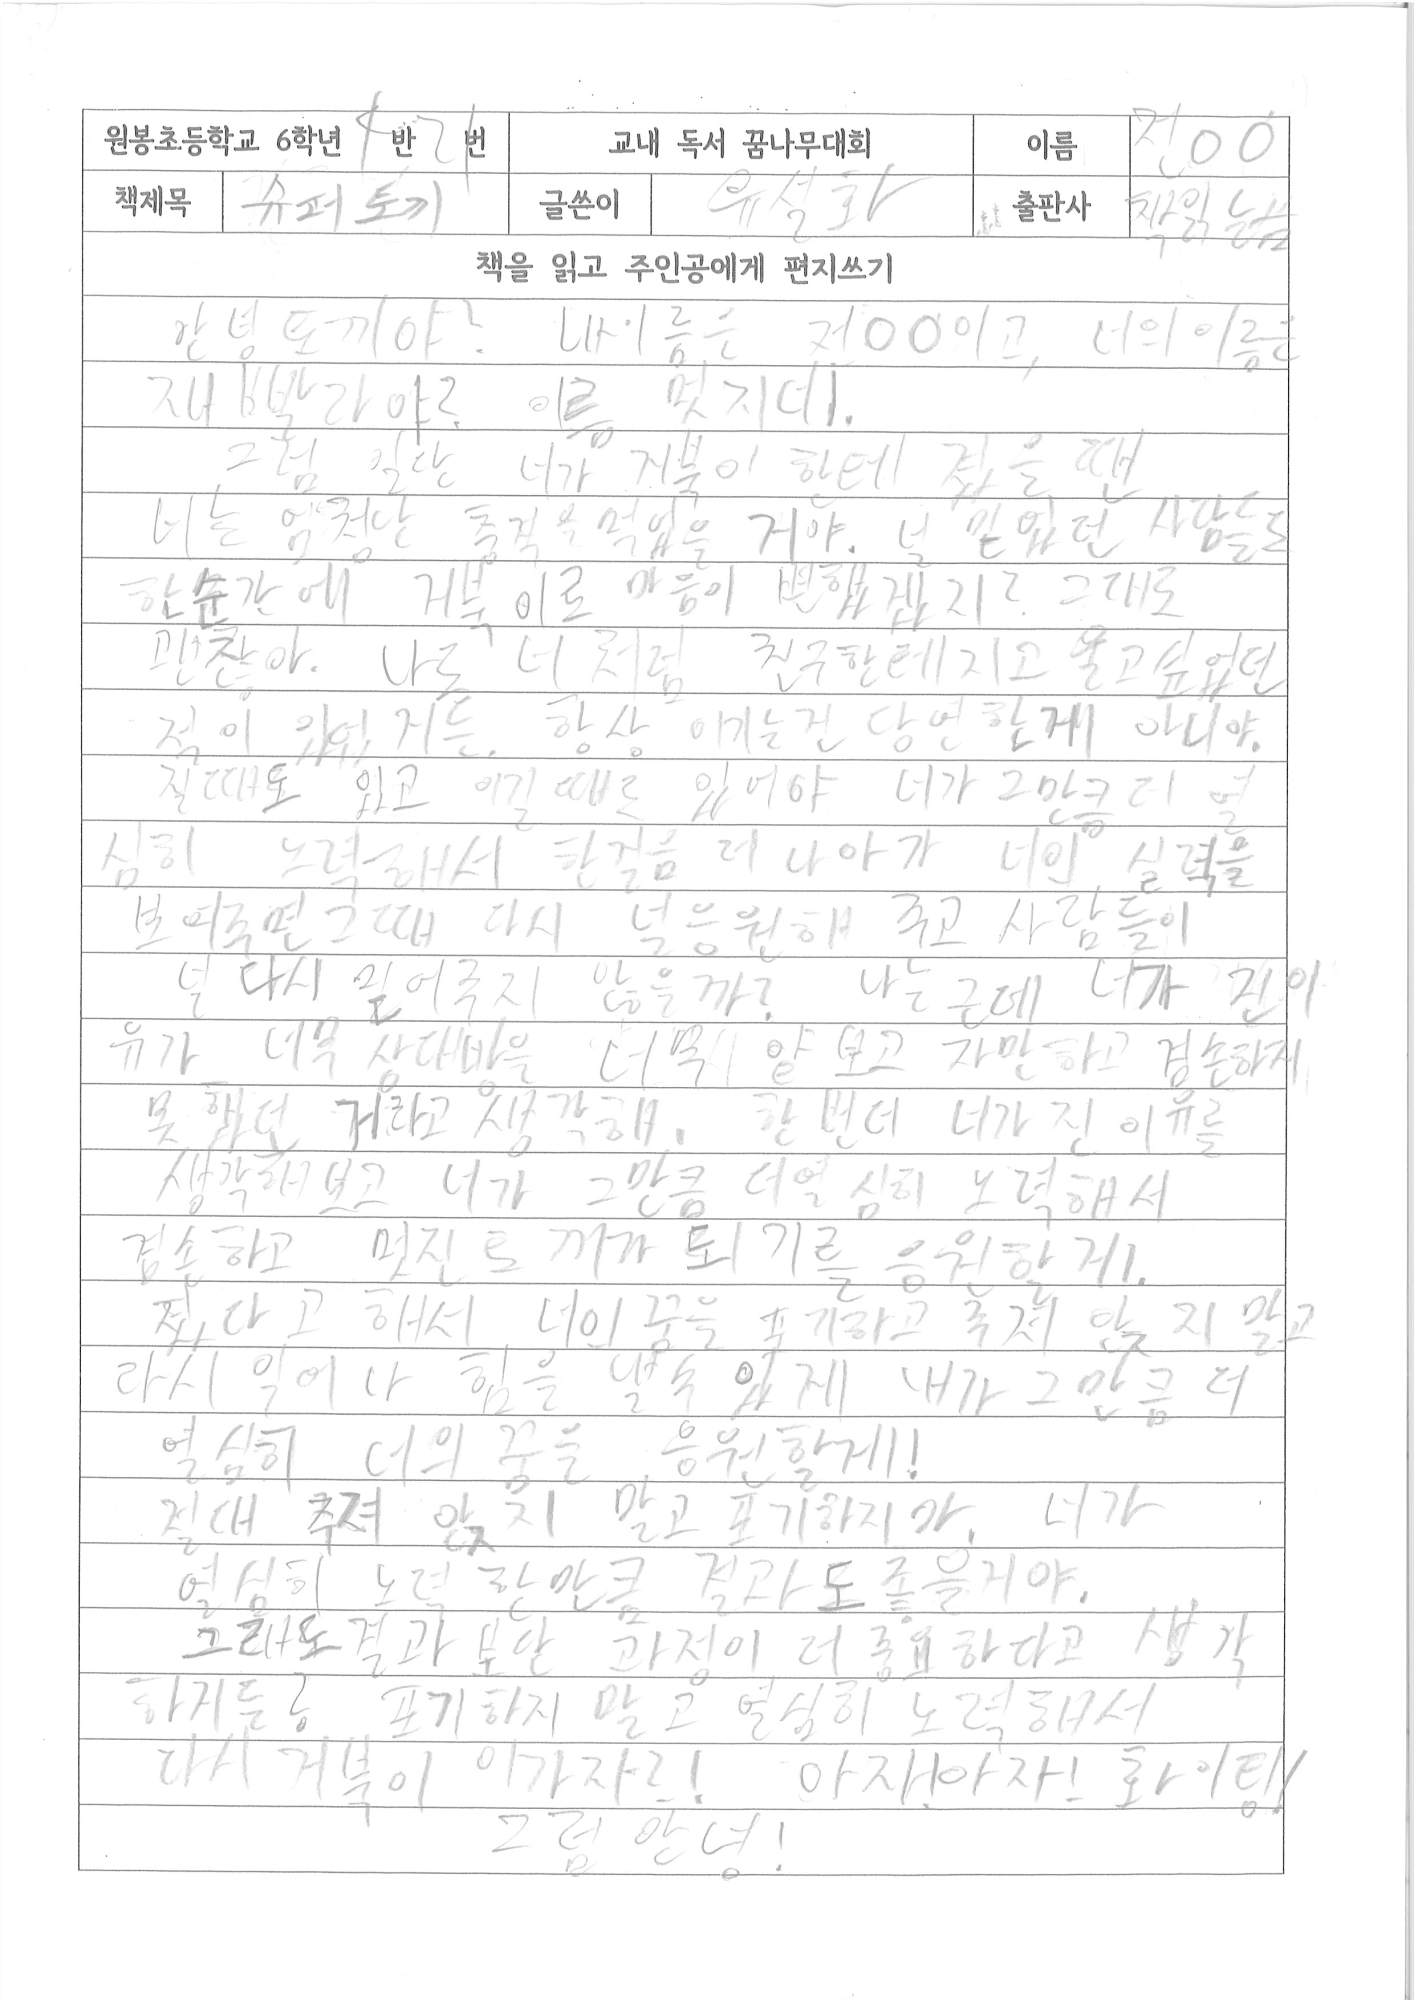 원봉초등학교 6학년 반 번 교내 독서 꿈나무대회 이름 전00
책제목 슈퍼토끼 글쓴이 유설화 출판사 책읽는곰
책을 읽고 주인공에게 편지쓰기
안녕 토끼야? 내이름은 전00이고, 너의이름은
재빨라야? 이름 멋지다!.
그럼 일단 너가 거북이 한테 졌을 땐
너는 엄청난 충격을먹었을 거야. 널 믿었던 사람들도
한순간에 거북이로 마음이 변했겠지? 그대로
괜찮아. 나도 너처럼 친구한테지고 울고싶었던
적이 있었거든. 항상 이기는건 당연한게 아니야.
질때도 있고 이길때도 있어야 너가 그만큼 더 열
심히 노력해서 한걸음 더 나아가 너의 실력을
보여주면 그때 다시 널응원해 주고 사람들이
널 다시 믿어주지 않을까? 나는 근데 너가 진이
유가 너무 상대방을 너무 얕보고 자만하고 겸손하지
못했던 거라고 생각해. 한번더 너가 진이유를
생각해보고 너가 그만큼 더열심히 노력해서
겸손하고 멋진 토끼가 되기를 응원할게!.
졌다고 해서 너의 꿈을 포기하고 주져 앉지 말고
다시 일어나 힘을 낼수 있게 내가 그만큼 더
열심히 너의 꿈을 응원할게!
절대 주져 앉지 말고 포기하지마. 너가
열심히 노력한만큼 결과도 좋을거야.
그래도 결과 보단 과정이 더 중요하다고 생각
하거든? 포기하지 말고 열심히 노력해서
다시 거북이 이기자! 아자!아자! 화이팅!
그럼 안녕!